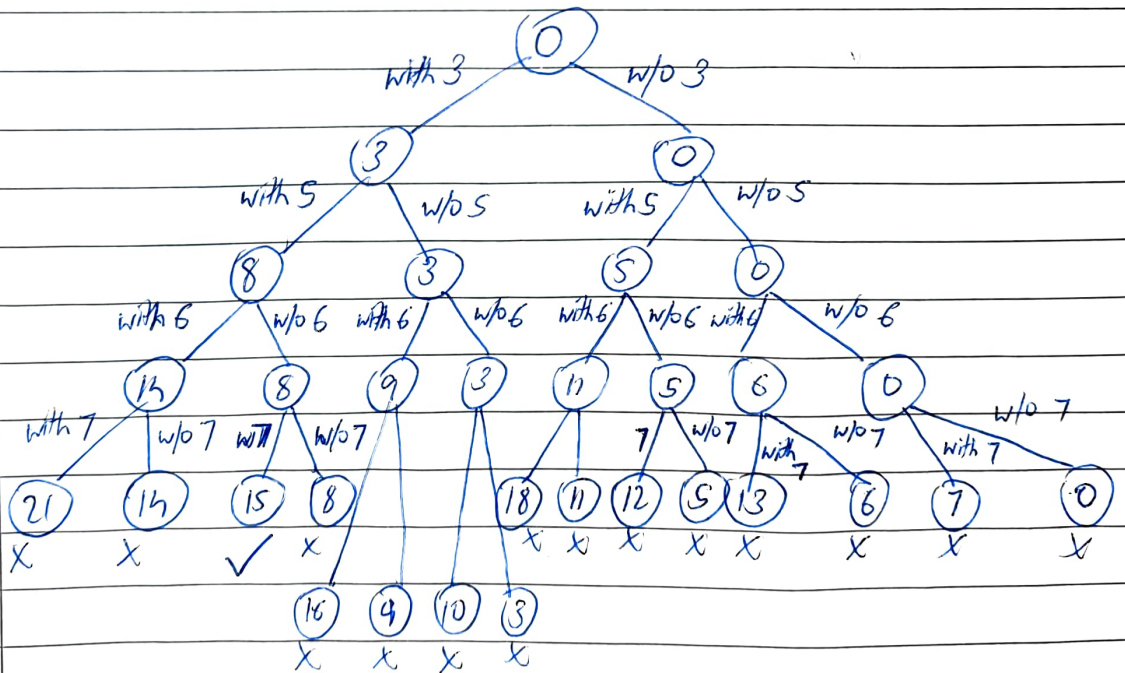 0
with 3 w/o 3
3 0
with 5 w/o 5 with 5 w/o 5
8 3 5 0
with 6 w/o 6 with 6 w/o 6 with 6 w/o 6 with 6 w/o 6
14 8 9 3 11 5 6 0
with 7 w/o 7 w/o 7 7 w/o 7 with 7 w/o 7 with 7 w/o 7
21 14 15 8 18 11 12 5 13 6 7 0
x x ✓ x x x x x x x x x
16 9 10 3
x x x x